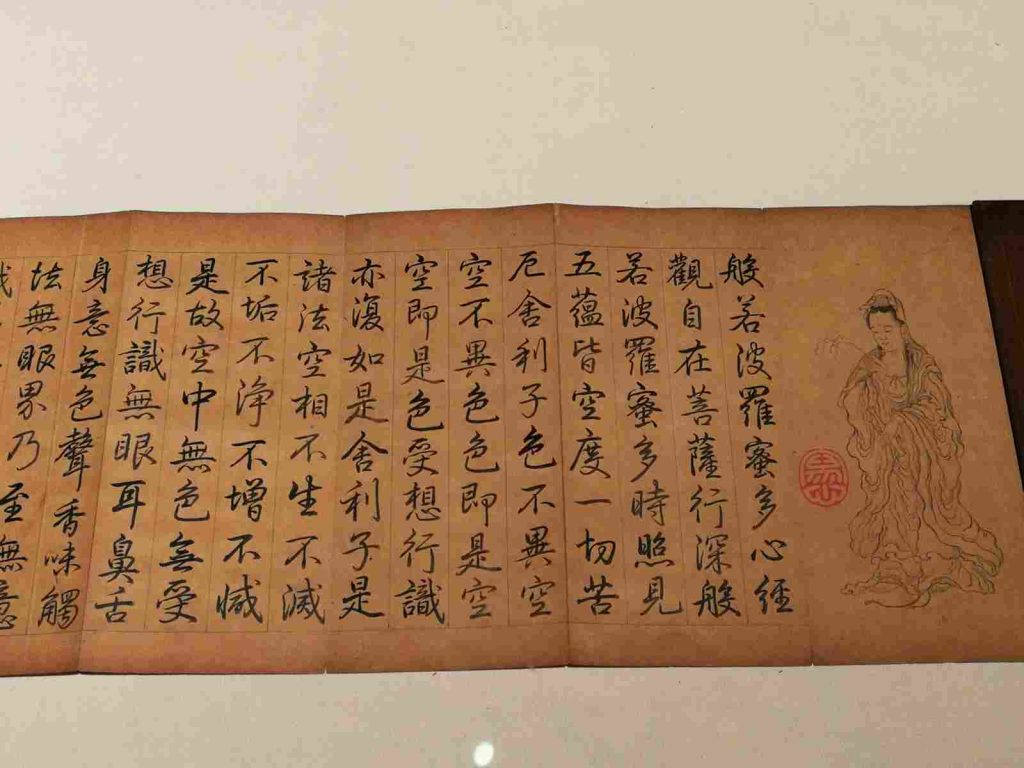 般若波羅蜜多心經
觀自在菩薩行深般
若波羅蜜多時照見
五蘊皆空度一切苦
厄舍利子色不異空
空不異色色即是空
空即是色受想行識
亦復如是舍利子是
諸法空相不生不滅
不垢不淨不增不減
是故空中無色無受
想行識無眼耳鼻舌
身意無色聲香味觸
法無眼界乃至無意